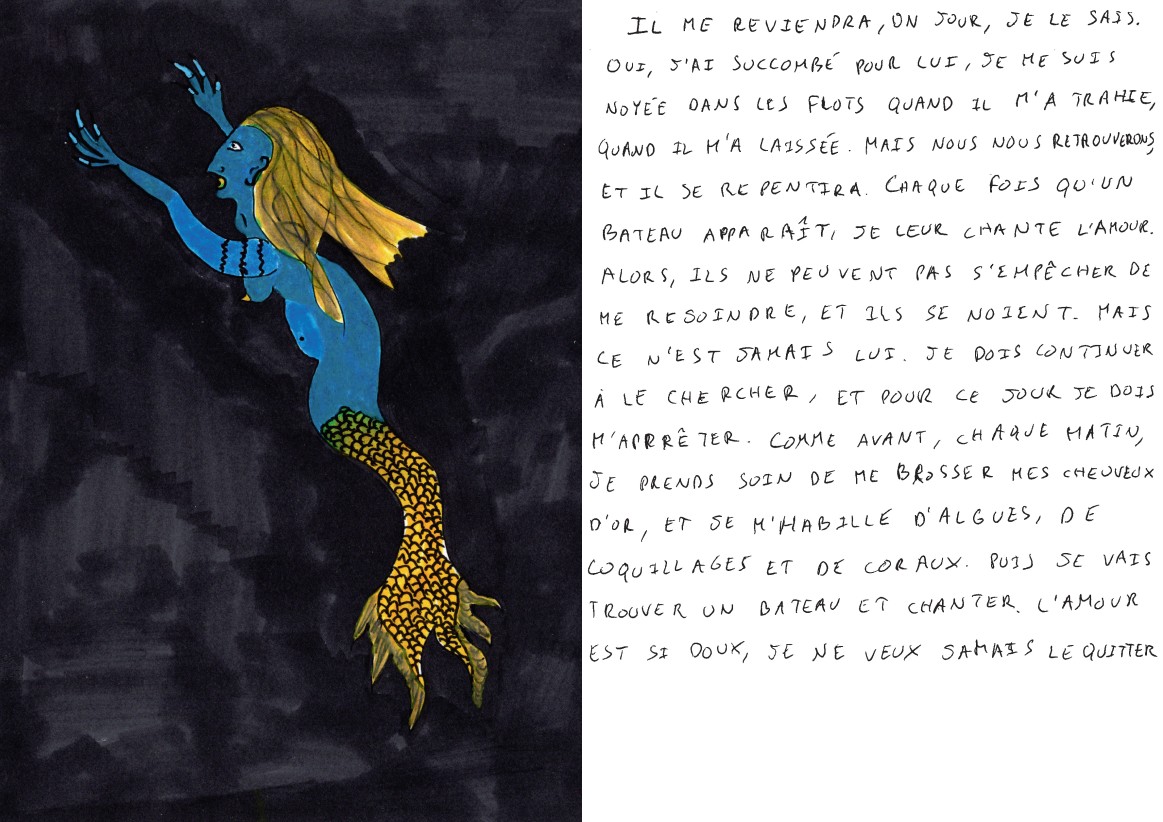 IL ME REVIENDRA, UN JOUR, JE LE SAIS.
OUI, J'AI SUCCOMBÉ POUR LUI, JE ME SUIS
NOYÉE DANS LES FLOTS QUAND IL M'A TRAHIE,
QUAND IL M'A LAISSÉE. MAIS NOUS NOUS RETROUVERONS,
ET IL SE REPENTIRA. CHAQUE FOIS QU'UN
BATEAU APPARAÎT, JE LEUR CHANTE L'AMOUR.
ALORS, ILS NE PEUVENT PAS S'EMPÊCHER DE
ME REJOINDRE, ET ILS SE NOIENT. MAIS
CE N'EST JAMAIS LUI. JE DOIS CONTINUER
À LE CHERCHER, ET POUR CE JOUR JE DOIS
M'APPRÊTER. COMME AVANT, CHAQUE MATIN,
JE PRENDS SOIN DE ME BROSSER MES CHEUVEUX
D'OR, ET JE M'HABILLE D'ALGUES, DE
COQUILLAGES ET DE CORAUX. PUIS JE VAIS
TROUVER UN BATEAU ET CHANTER. L'AMOUR
EST SI DOUX, JE NE VEUX JAMAIS LE QUITTER